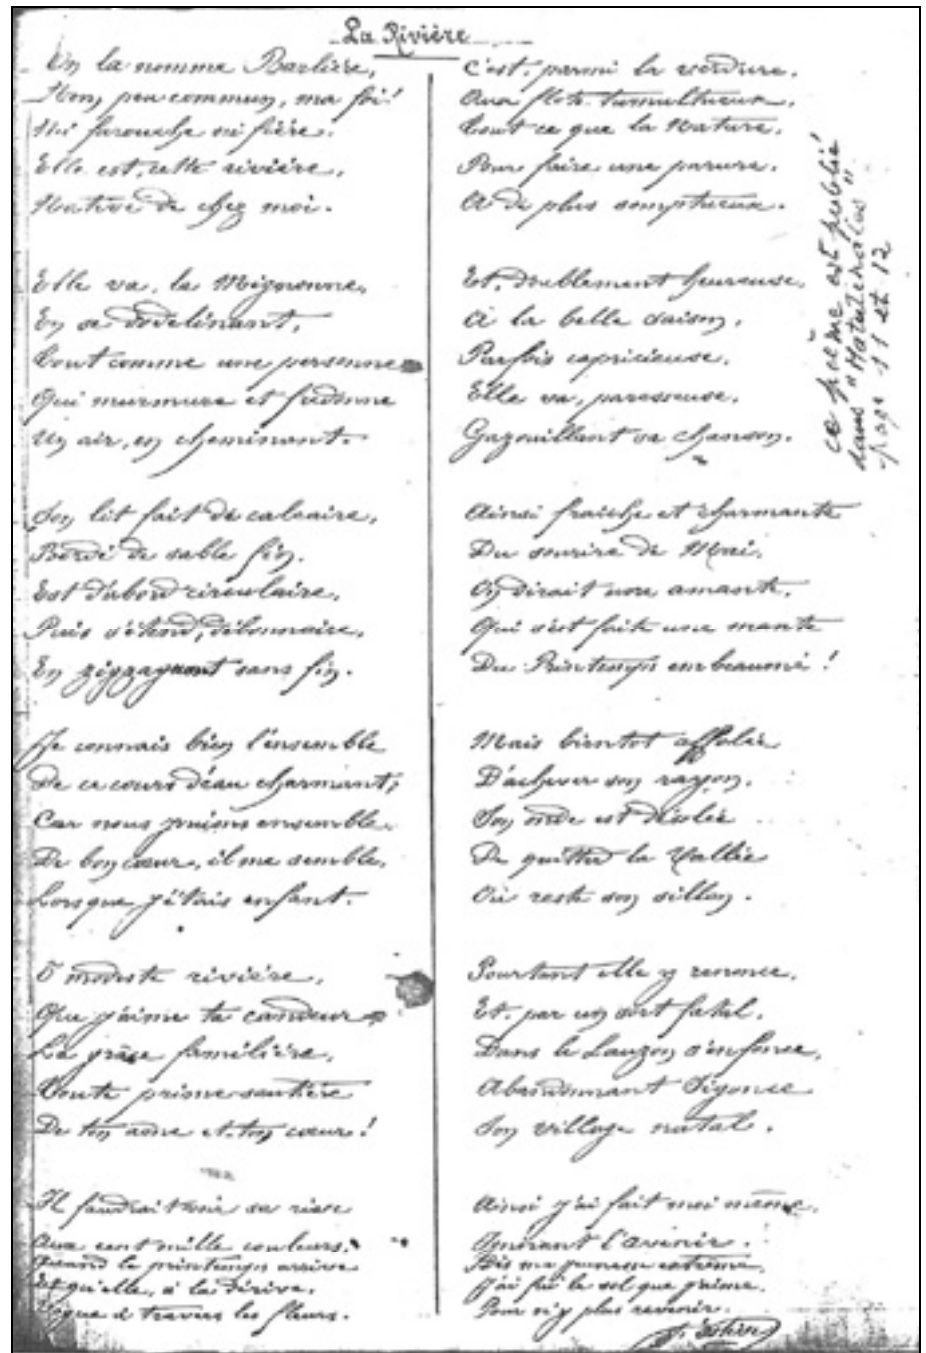 La Rivière
On la nomme Barlière,
Nom peu commun, ma foi!
Ni farouche ni fière.
Elle est, cette rivière,
Native de chez moi.
Elle va, la Mignonne,
En se dodelinant,
Tout comme une personne
Qui murmure et fredonne
Un air, en cheminant.
Son lit fait de calcaire,
Bordé de sable fin.
Est d'abord circulaire,
Puis s'étend, débonnaire,
En zigzaguant sans fin.
Je connais bien l'ensemble
De ce cours d'eau charmant,
Car nous jouions ensemble,
De bon cœur, il me semble,
Lorsque j'étais enfant.
O modeste rivière,
Que j'aime ta candeur
La grâce familière,
Toute prime-sautière
De ton âme et ton cœur!
Il faudrait voir sa rive
Aux cent mille couleurs,
Quand le printemps arrive
Et qu'elle, à la dérive,
Vogue à travers les fleurs.
C'est, parmi la verdure,
Aux flots tumultueux,
Tout ce que la Nature,
Pour faire une parure,
A de plus somptueux.
Et, doublement heureuse,
A la belle saison,
Parfois capricieuse,
Elle va, paresseuse,
Gazouillant sa chanson.
Ainsi fraîche et charmante
Du sourire de Mai,
On dirait une amante,
Qui s'est faite une mante
Du Printemps embeaumé!
Mais bientot affolée
D'achever son rayon,
Son onde est désolée
De quitter la Vallée
Où reste son sillon.
Pourtant elle y renonce,
Et, par un sort fatal,
Dans le Lauzon s'enfonce,
Abandonnant Sigonce
Son village natal.
Ainsi j'ai fait moi même,
Ignorant l'avenir.
Dès ma jeunesse extrême,
J'ai fui le sol que j'aime,
Pour n'y plus revenir.
ce poème est publié
dans "Matutinales"
page 11 et 12